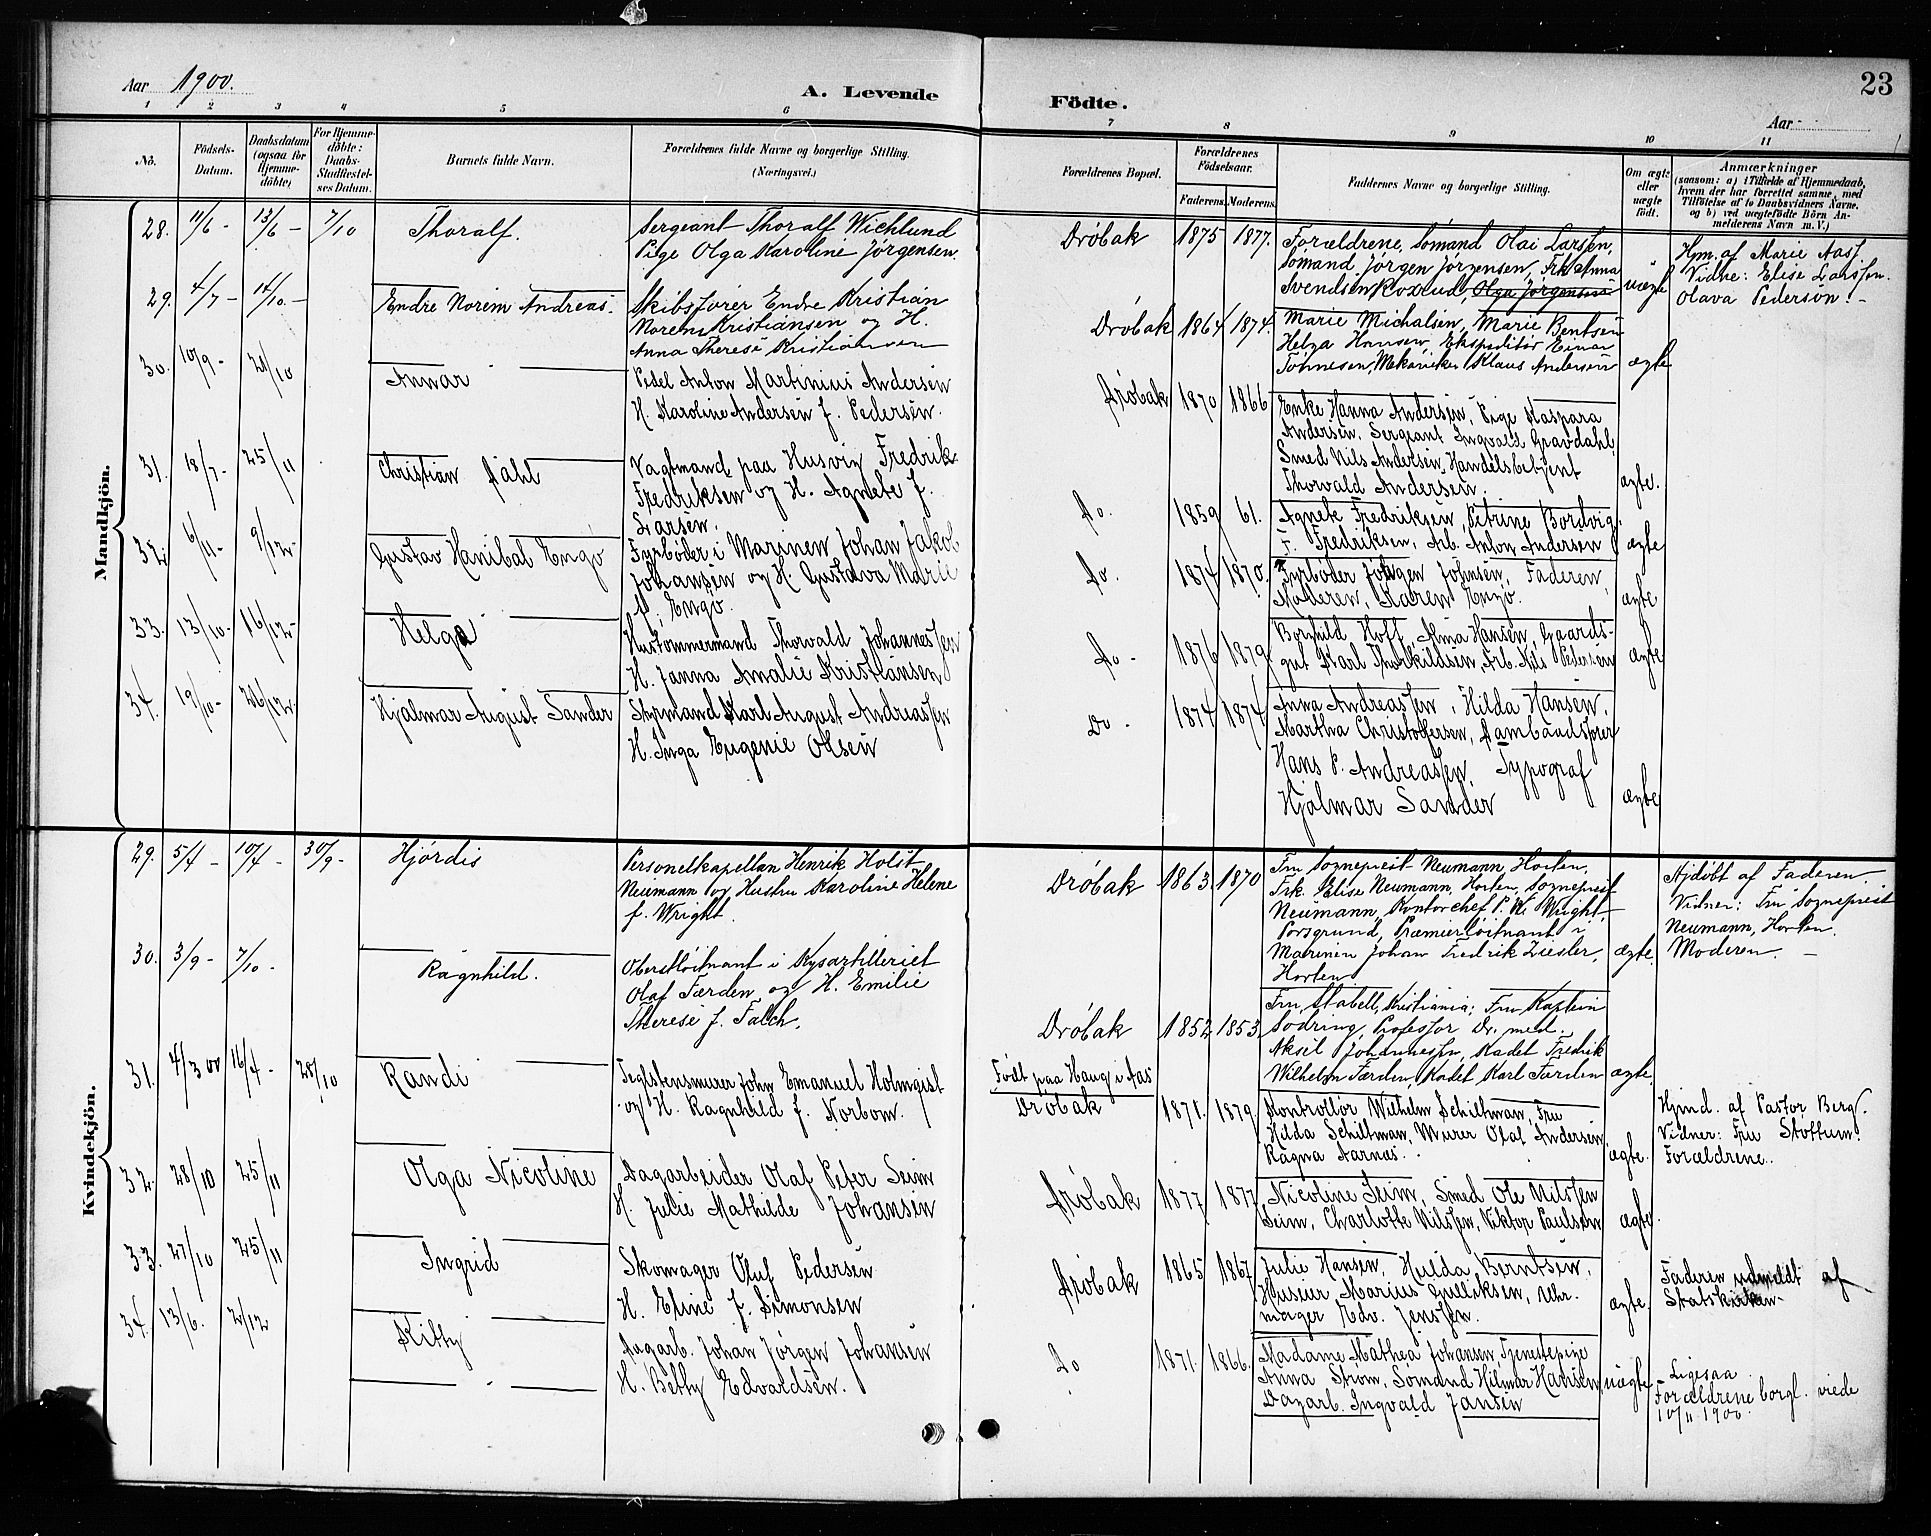 23
Aar 1900. A. Levende Födte. Aar
1 2 3 4 5 6 7 8 9 10 11
No.
Födsels-
Datum.
Daabsdatum
(ogsaa for
Hjemme-
döbte)
For Hjemme-
döbte:
Daabs-
Stadfæstel-
ses Datum.
Barnets fulde Navn.
Forældrenes fulde Navne og borgerlige Stilling.
(Næringsvei.)
Forældrenes Bopæl.
Forældrenes
Födselsaar.
Faderens. Moderens.
Faddernes Navne og borgerlige Stilling.
Om ægte
eller
uægte
födt.
Anmærkninger
(saasom: a) i Tilfælde af Hjemmedaab,
hvem der har forrettet samme, med
Tilföielse af to Daabsvidners Navne,
og b) ved uægtefödte Börn An-
melderens Navn m. V.)
Mandkjön.
28. 11/6 - 13/6 - 7/10 Thoralf.
Sergeant Thoralf Wichlund
Pige Olga Karoline Jørgensen.
Dröbak 1875 1877.
Forældrene, Sömand Olai Larssen,
Sömand Jörgen Jörgensen, Frk Anna
Svendsen Roxrud, Olga Jørgensen
uægte
Hjm. af Marie Aas
Vidne: Elise Larssen.
Olava Pedersön! -
29. 4/7 - 14/10 - Endre Norem Andreas.
Skibsförer Endre Kristian
Norem Kristiansen og H.
Anna Therese Kristiansen
Dröbak 1864 1874.
Marie Michalsen, Marie Bentsen
Helga Hansen, Ekspeditör Einar
Tönnesen, Mekaniker Klaus Andersen
ægte
30. 10/9 - 21/10 Annar
Pedel Anton Martinius Andersen
H. Karoline Andersen f. Pedersen.
Dröbak 1870 1866
Enke Hanna Andersen, Pige Kaspara
Andersen, Sergeant Ingvald Gravdahl,
Smed Nils Andersen, Handelsbetjent
Thorvald Andersen.
ægte.
31. 18/7 - 25/11 Christian Dahl
Vagtmand paa Husvig Fredrik
Fredriksen og H. Agnete f.
Larsen.
Do. 1859 61.
Agnete Fredriksen, Petrine Bordvig
F. Fredriksen, Arb. Anton Andersen
ægte
32. 6/11 - 9/12 - Gustav Hanibal Engö
Fyrböder i Marinen Johan Jakob
Johansen og H. Gustava Marie
f. Engö.
Do. 1874 1870.
Fyrböder Jörgen Johnsen, Faderen,
Moderen, Karen Engö.
ægte
33. 13/10 - 16/12 - Helge
Hustömmermand Thorvald Johannessen
H. Janna Amalie Kristiansen
Do - 1876 1879.
Borghild Hoff, Alma Hansen, Gaards-
gut Karl Thorkildsen, Arb. Nils Pedersen
ægte
34. 19/10 - 26/12 - Hjalmar August Sander
Styrmand Karl August Andreassen
H. Inga Eugenie Olsen
Do - 1874 1874
Anna Andreassen, Hilda Hansen,
Martha Christoffersen, Dambaadsförer
Hans P. Andreassen, Typograf
Hjalmar Sander
ægte
Kvindekjön.
29. 5/4 - 10/4 - 30/9 - Hjördis
Personelkapellan Henrik Holst
Neumann og Hustru Karoline Helene
f. Wright.
Dröbak 1863. 1870
Fru Sogneprest Neumann, Horten,
Frk. Elise Neumann, Horten, Sogneprest
Neumann, Kontorchef P. Wright,
Porsgrund, Premierlöitnant i
Marinen Johan Fredrik Ziesler,
Horten
ægte.
Hjdöbt af Faderen.
Vidner: Fru Sogneprest
Neumann, Horten.
Moderen. -
30. 3/9 - 7/10 - Ragnhild.
Oberstlöitnant i Kystartilleriet
Olaf Færden og H. Emilie
Therese f. Falch.
Dröbak 1852 1853.
Fru Stabell, Kristiania; Fru Kaptein
Södring, Professor Dr. med.
Aksel Johannessen, Kadet Fredrik
Wilhelm Færden, Kadet Karl Færden
ægte.
31. 4/3 00 16/4 - 28/10 Randi
Teglstensmurer John Emanuel Holmqist
og H. Ragnhild f. Norbom.
Födt paa Haug i Aas
Dröbak 1871. 1879
Kontrollör Wilhelm Schiltman, Fru
Hilda Schiltman, Murer Olaf Andersen,
Ragna Aarnæs.
ægte.
Hjmd. af Pastor Berg.
Vidner: Fru Stöttum.
Forældrene.
32. 28/10 25/11 Olga Nicoline
Dagarbeider Olaf Peter Seim
H. Julie Mathilde Johansen
Dröbak 1877 1877
Nicoline Seim, Smed Ole Nilssen
Seim, Charlotte Nilssen, Viktor Paulsen
ægte.
33. 27/10 25/11 Ingrid
Skomager Oluf Pedersen
H. Eline f. Simonsen
Dröbak 1865 1867
Julie Hansen, Hulda Berntsen,
Huseier Marius Gulliksen, Uhr-
mager Edv. Jenssen.
ægte.
Faderen udmeldt af
Statskirken-
34. 13/6. 2/12 Kitty
Dagarb. Johan Jørgen Johansen
H. Betty Edvardsen.
Do 1871. 1866.
Madame Mathea Johansen, Tjenestepige
Anna Ström, Sömand Hilmar Hansen
Dagarb. Ingvald Jansen
uægte
- Ligesaa
Forældrene borgl. viede
10/11 1900.